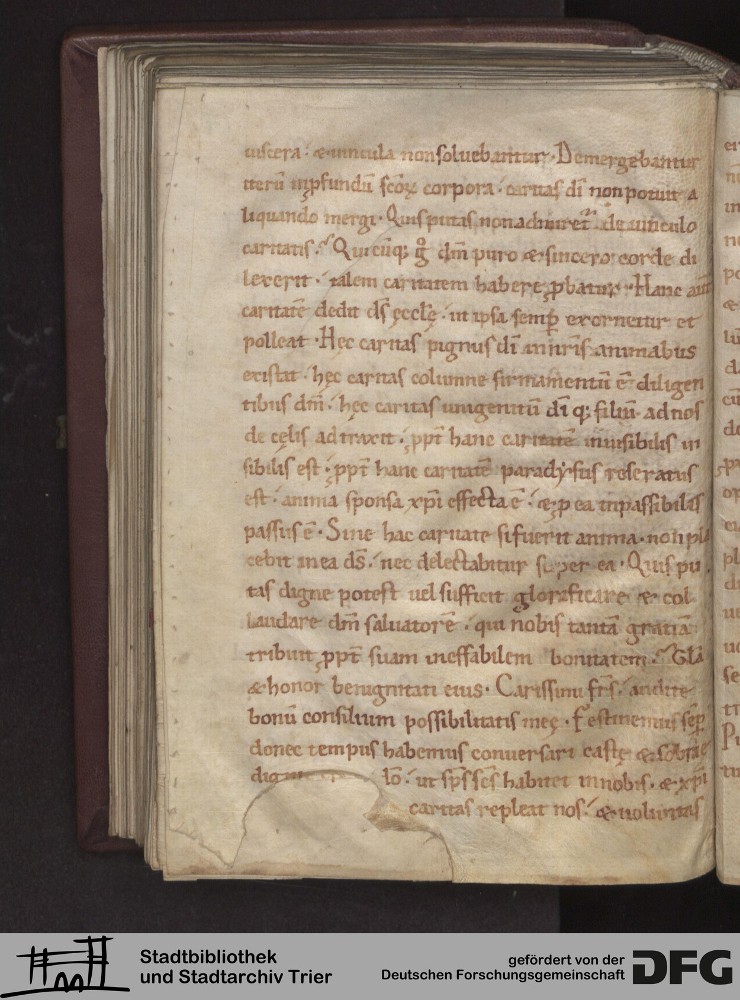 uiscera · & uincula non soluebantur · Demergebantur
iterũ in ꝓfundũ scõꝝ corpora · caritas dĩ non potuit a
liquando mergi · Quis putas non admiret᷑ de uinculo
caritatis · Quicũq; g̊ dñm puro & sincero corde di
lexerit · talem caritatem habere ꝓbatur · Hanc aut̃
caritatẽ dedit ds̃ ęcclę · ut ipsa semꝑ exornetur et
polleat · Hęc caritas pignus dĩ in nr̃is animabus
existat · hęc caritas columne firmamentũ ẽ diligen
tibus dñm · hęc caritas unigenitũ dĩ q; filiũ ad nos
de cęlis adtraxit · ꝓpt̃ hanc caritatẽ inuisibilis ui
sibilis est · ꝓpt̃ hanc caritatẽ paradysus reseratus
est · anima sponsa xp̃i effecta ẽ · & ꝑ ea inpassibilis
passus ẽ · Sine hac caritate si fuerit anima · non pla
cebit in ea ds̃ · nec delectabitur super ea · Quis pu
tas digne potest uel sufficit glorificare & col
laudare dñm saluatorẽ · qui nobis tantã gratiã
tribuit ꝓpt̃ suam ineffabilem bonitatem · Gl̃a
& honor benignitati eius · Carissimi fr̃s · audite
bonũ consilium possibilitatis meę · Festinemus semꝑ
donec tempus habemus conuersari caste & sobrie
lõ · ut sp̃s scs̃ habitet in nobis · & xp̃i
caritas repleat nos · & uoluntas
Stadtbibliothek
und Stadtarchiv Trier
gefördert von der
Deutschen Forschungsgemeinschaft
DFG